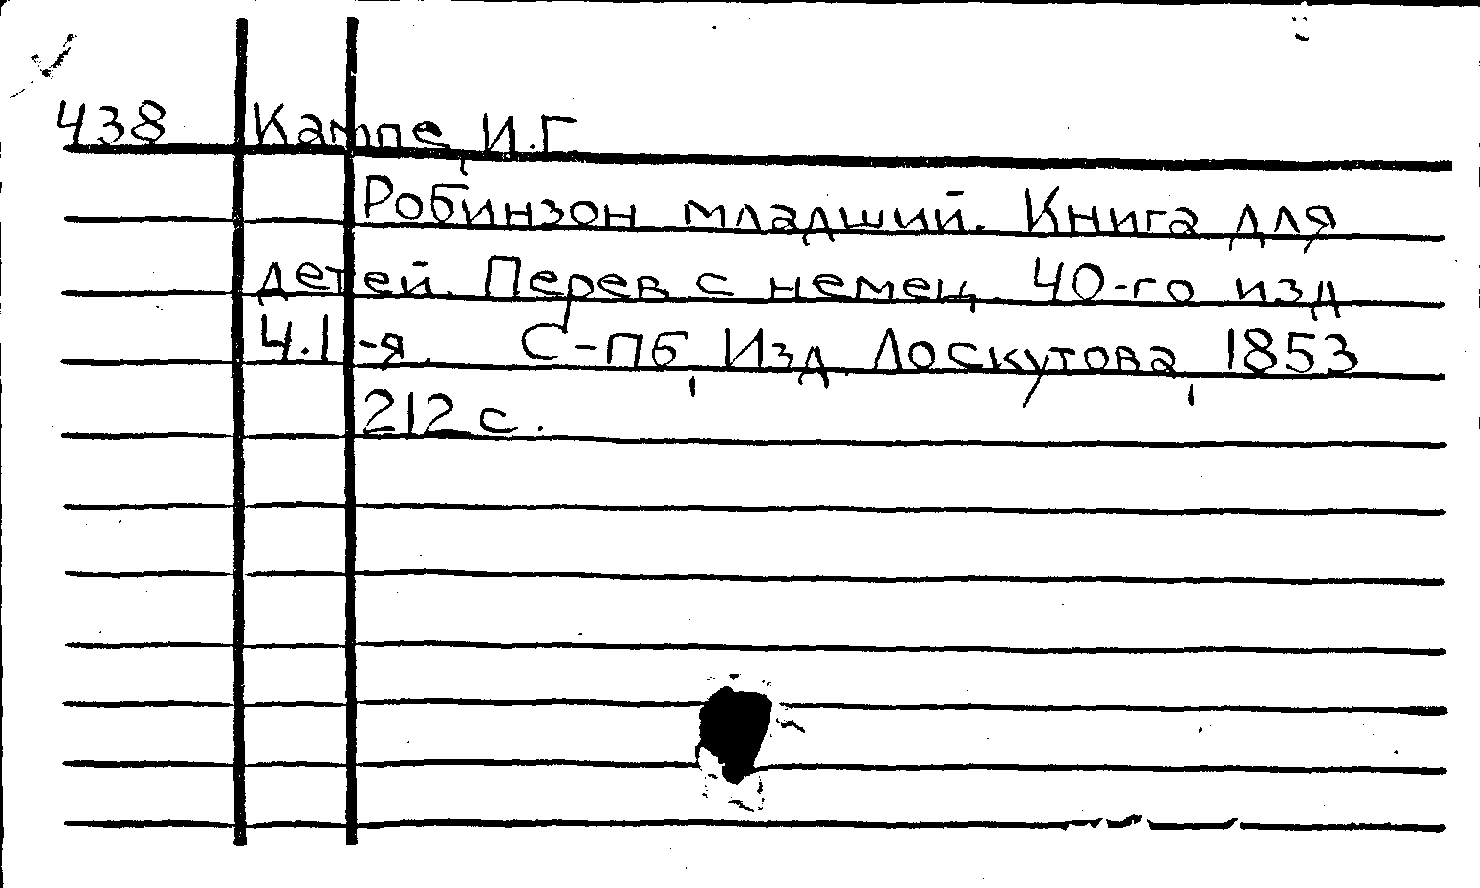 438 Кампе, И.Г.
Робинзон младший. Книга для
детей. Перев с немец. 40-го изд
Ч.1-я. С-Пб, Изд. Лоскутова, 1853
212 с.